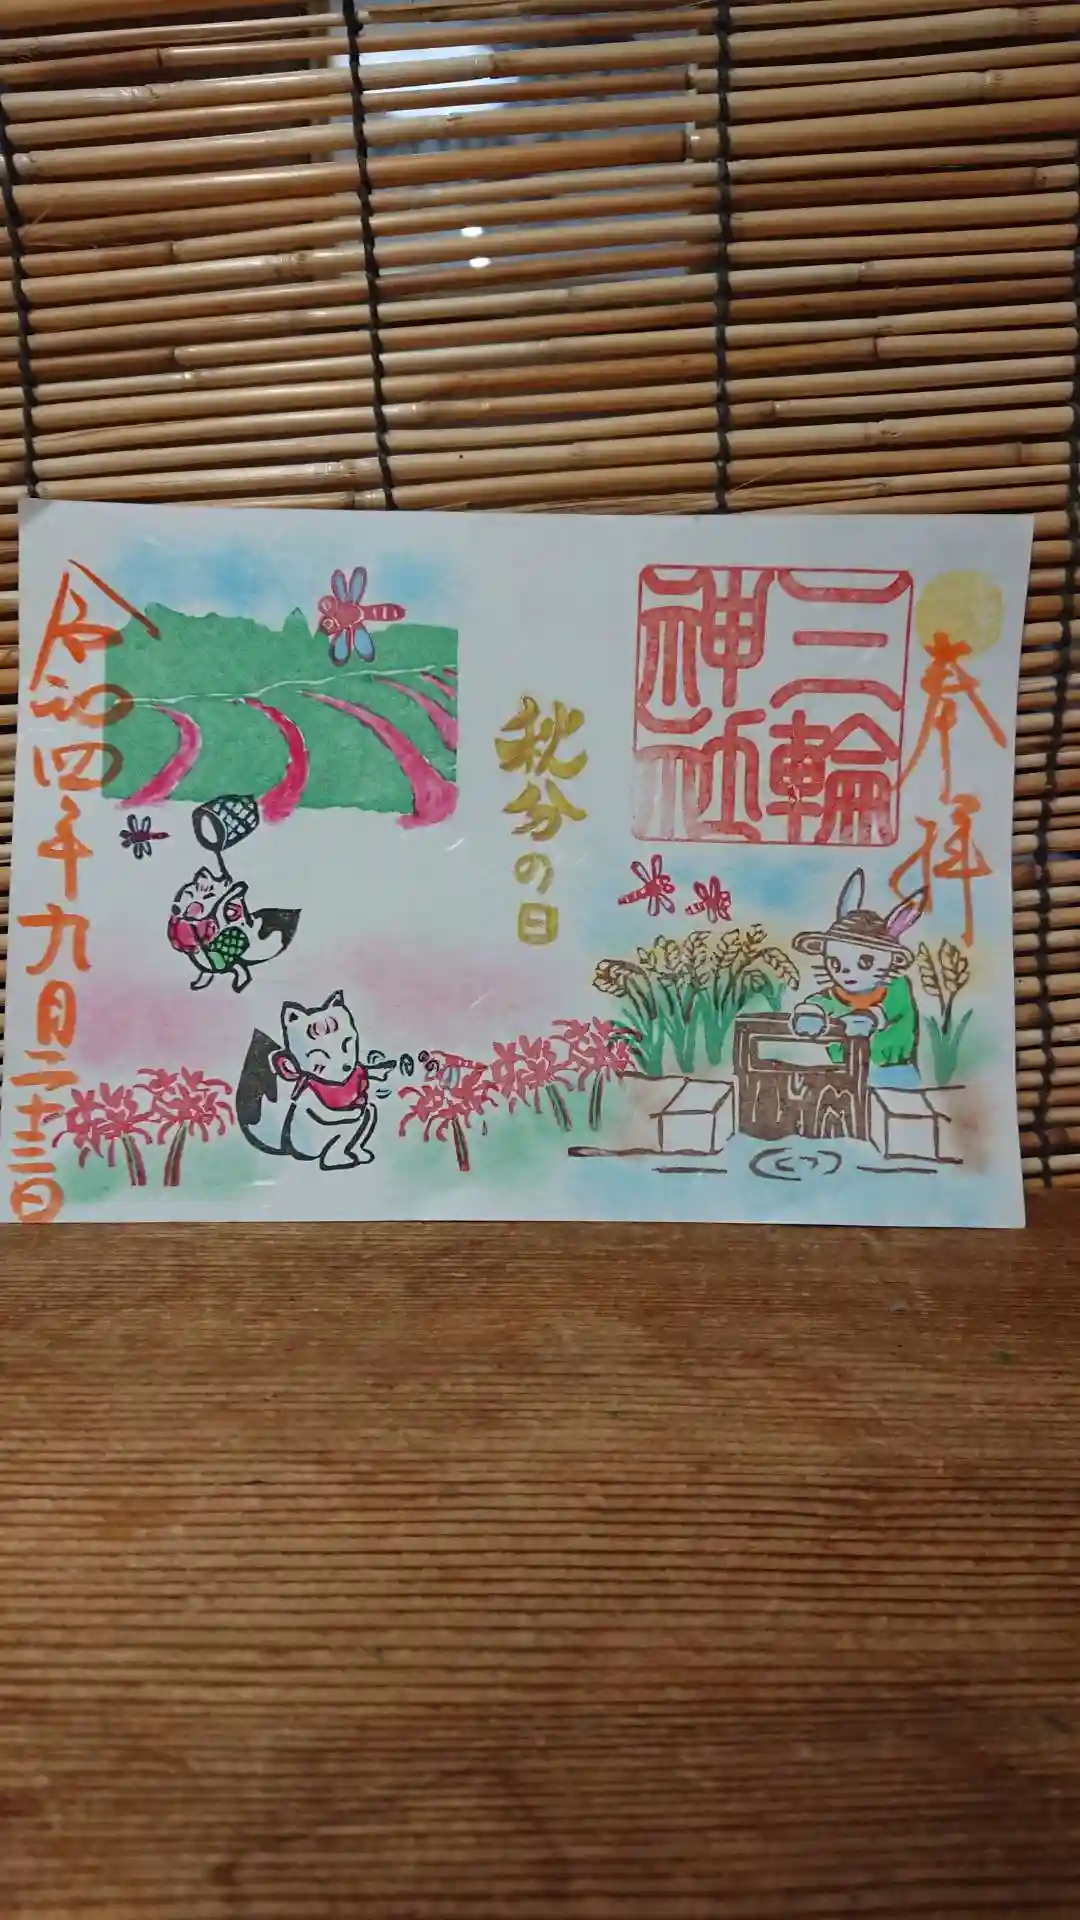 奉拝
三輪
神社
秋分の日
令和四年九月二十三日